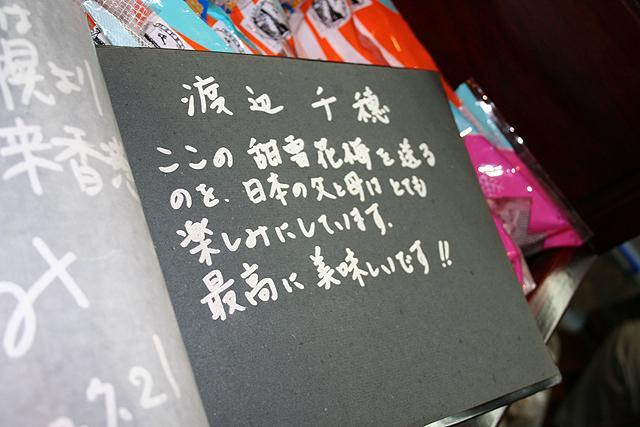 渡辺 千穂
ここの 甜雪花梅を送る
のを、日本の父と母は とても
楽しみにしています.
最高に 美味しいです!!
幌より
来香港
7.21